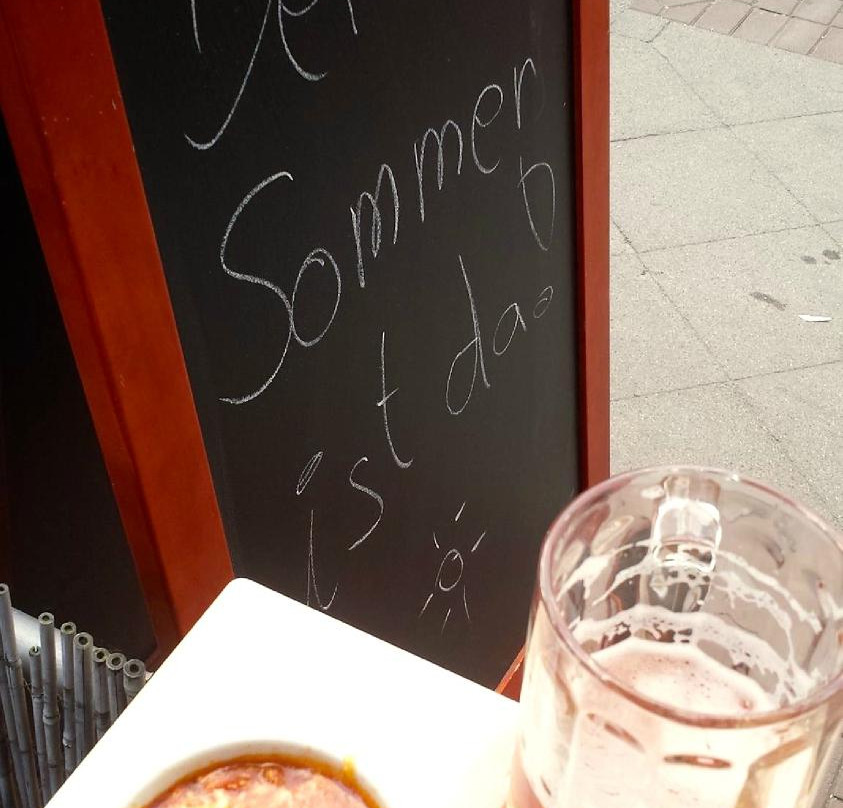 Der
Sommer
ist da!